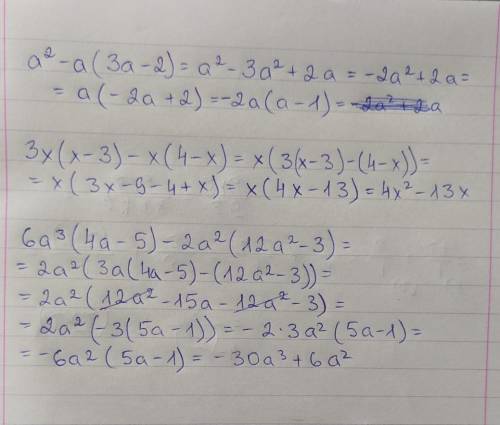 a² - a(3a-2) = a² - 3a² + 2a = -2a² + 2a =
= a(-2a+2) = -2a(a-1) = -2a² + 2a
3x(x-3) - x(4-x) = x(3(x-3)-(4-x)) =
= x(3x-9-4+x) = x(4x-13) = 4x² - 13x
6a³(4a-5) - 2a²(12a²-3) =
= 2a²(3a(4a-5)-(12a²-3)) =
= 2a²(12a² - 15a - 12a² - 3) =
= 2a²(-3(5a-1)) = -2·3a²(5a-1) =
= -6a²(5a-1) = -30a³ + 6a²